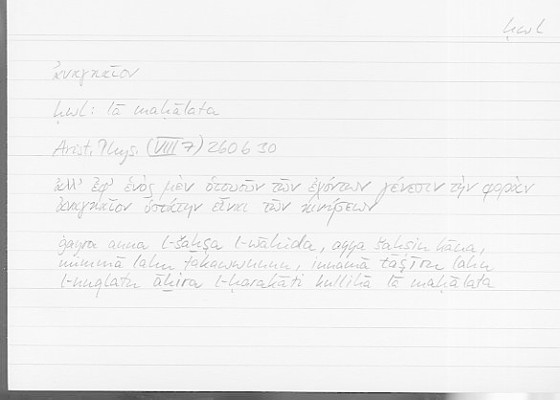 ḥwl
ἀναγκαῖον
ḥwl: lā maḥālata
Arist. Phys. (VIII 7) 260 b 30
ἀλλ' ἐφ' ἑνὸς μὲν ὁτουοῦν τῶν ἐχόντων γένεσιν τὴν φορὰν
ἀναγκαῖον ὑστάτην εἶναι τῶν κινήσεων
ġayra anna l-šaḫṣa l-wāḥida, ayya šaḫsin kāna,
mimmā lahu takawwunun, innamā taṣīru lahu
l-nuqlatu āḫira l-ḥarakāti kullihā lā maḥālata